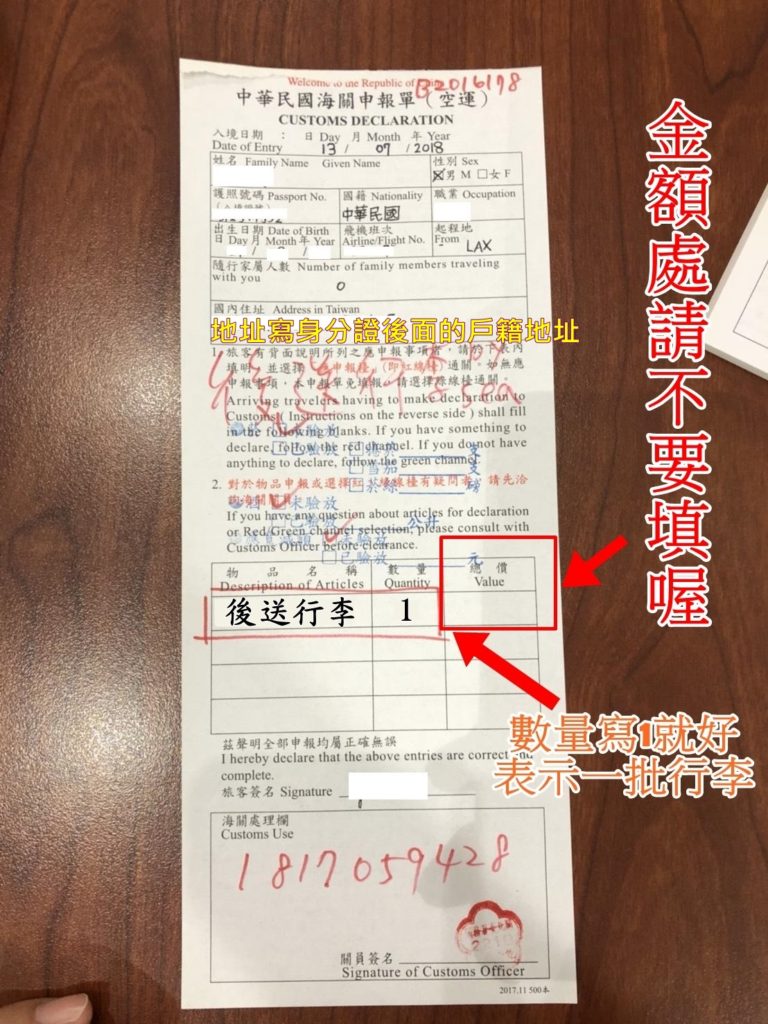 Welcome to the Republic of
B2016178
中華民國海關申報單（空運）
CUSTOMS DECLARATION
入境日期 ： 日 Day 月 Month 年 Year
Date of Entry 13 / 07 / 2018
姓名 Family Name Given Name
性別 Sex
男 M □女 F
護照號碼 Passport No.
國籍 Nationality
中華民國
職業 Occupation
出生日期 Date of Birth
日 Day 月 Month 年 Year
飛機班次
Airline/Flight No.
起程地
From LAX
隨行家屬人數 Number of family members traveling
with you 0
國內住址 Address in Taiwan
地址寫身分證後面的戶籍地址
1. 旅客有背面說明所列之應申報事項者，請於下表內
填明，並選擇 申報檯（即紅線檯）通關，如無應
申報事項，本申報單免填報，請選擇綠線檯通關。
Arriving travelers having to make declaration to
Customs ( Instructions on the reverse side ) shall fill
in the following blanks. If you have something to
declare, follow the red channel. If you do not have
anything to declare, follow the green channel.
2. 對於物品申報或選擇紅、綠線檯有疑問者，請先洽
詢海關關員
If you have any question about articles for declaration
or Red/Green channel selection, please consult with
Customs Officer before clearance.
未驗放
已驗放
雪茄
菸絲
公升
元
物品名稱
Description of Articles
數量
Quantity
總價
Value
後送行李 1
金額處請不要填喔
數量寫1就好
表示一批行李
茲聲明全部申報均屬正確無誤
I hereby declare that the above entries are correct and
complete.
旅客簽名 Signature
海關處理欄
Customs Use
1817059428
關員簽名
Signature of Customs Officer
2017.11 500本